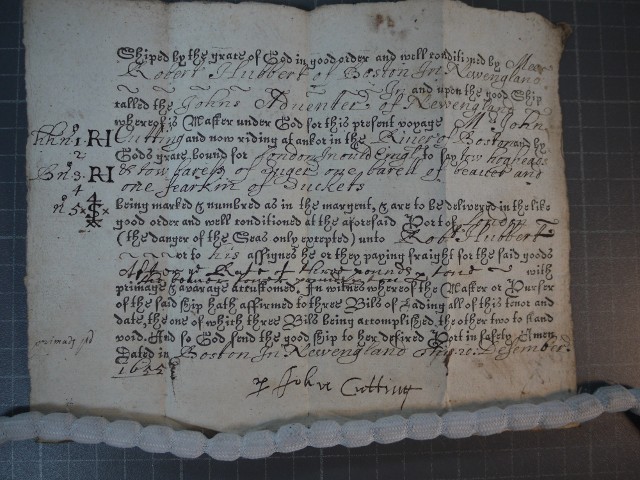 Shiped by the grace of God in good order and well conditioned by Mr
Robert Hubbert of Boston In Newengland
In and upon the good Ship
called the Johns Aduenter of Newengland
whereof is Master under God for this present voyage Mr John
Cutting and now riding at ankor in the Riuer of Boston and by
Gods grace bound for London In ould England to say tow hogheads
& tow barells of suger one barell of beauer and
one fearkin of Duckets
being marked & numbred as in the margent, & are to be delivered in the like
good order and well conditioned at the aforesaid Port of London
(the danger of the Seas only excepted) unto Robt Hubbert
or to his assignes he or they paying fraight for the said goods
After ye Rate of three pounds p tone with
primage & avarage accustomed. In witnes whereof the Master or Purser
of the said ship hath affirmed to three Bils of Lading all of this tenor and
date, the one of which three Bils being accomplished, the other two to stand
void. And so God send the good ship to her desired Port in safety Amen
Dated in Boston In Newengland
1655
p John Cutting
RI
RI